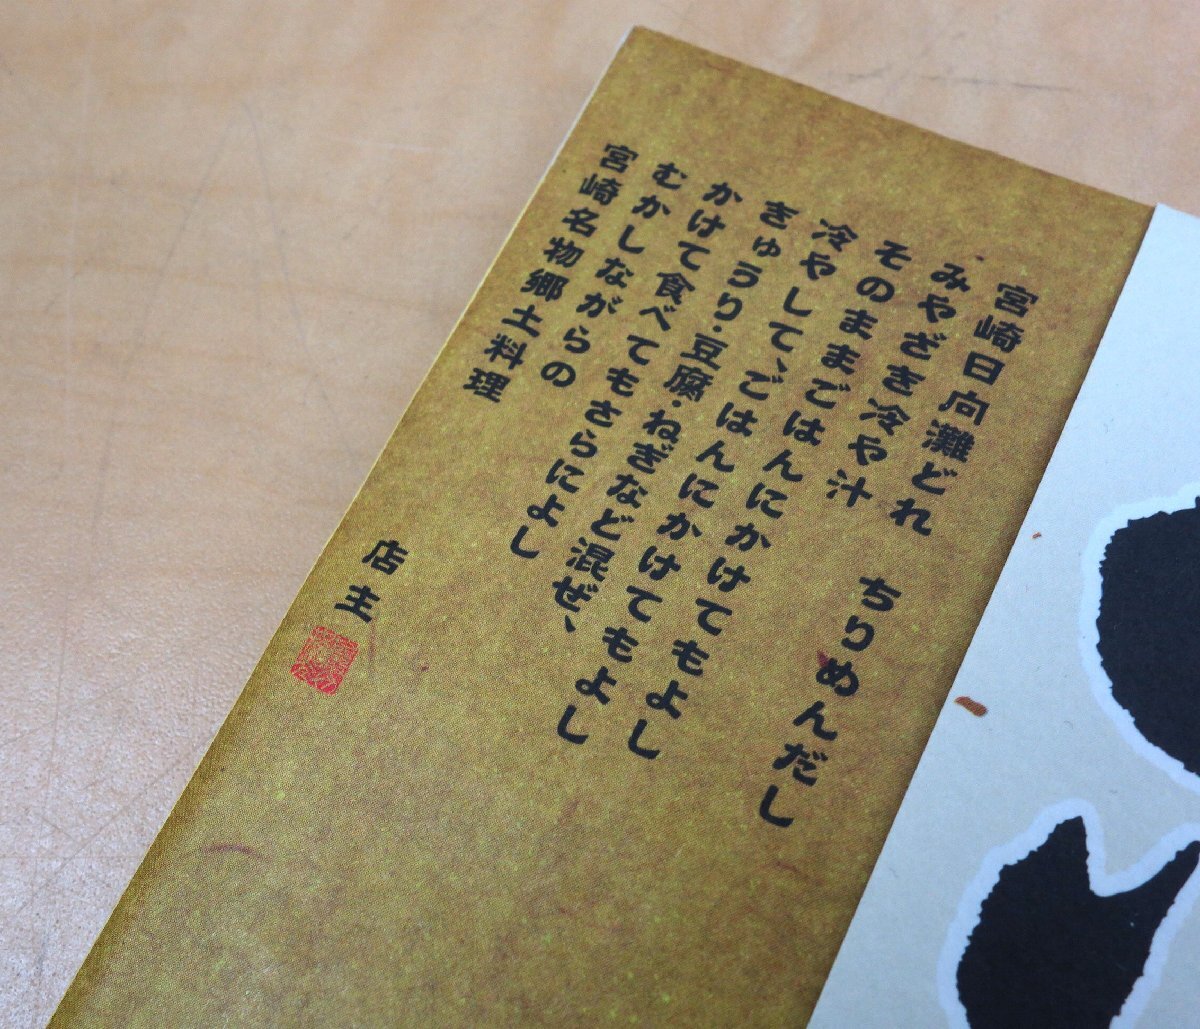 宮崎日向灘どれ　ちりめんだし
みやざき冷や汁
そのままごはんにかけてもよし
冷やして、ごはんにかけてもよし
きゅうり・豆腐・ねぎなど混ぜ、
かけて食べてもさらによし
むかしながらの
宮崎名物郷土料理
店主